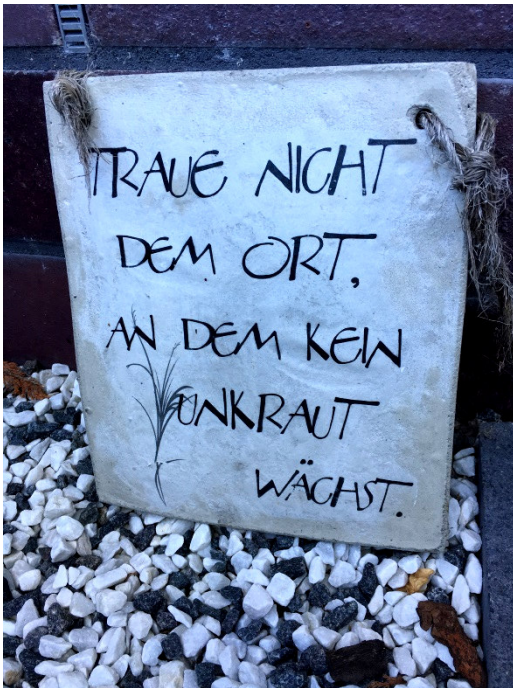 TRAUE NICHT
DEM ORT,
AN DEM KEIN
UNKRAUT
WÄCHST.